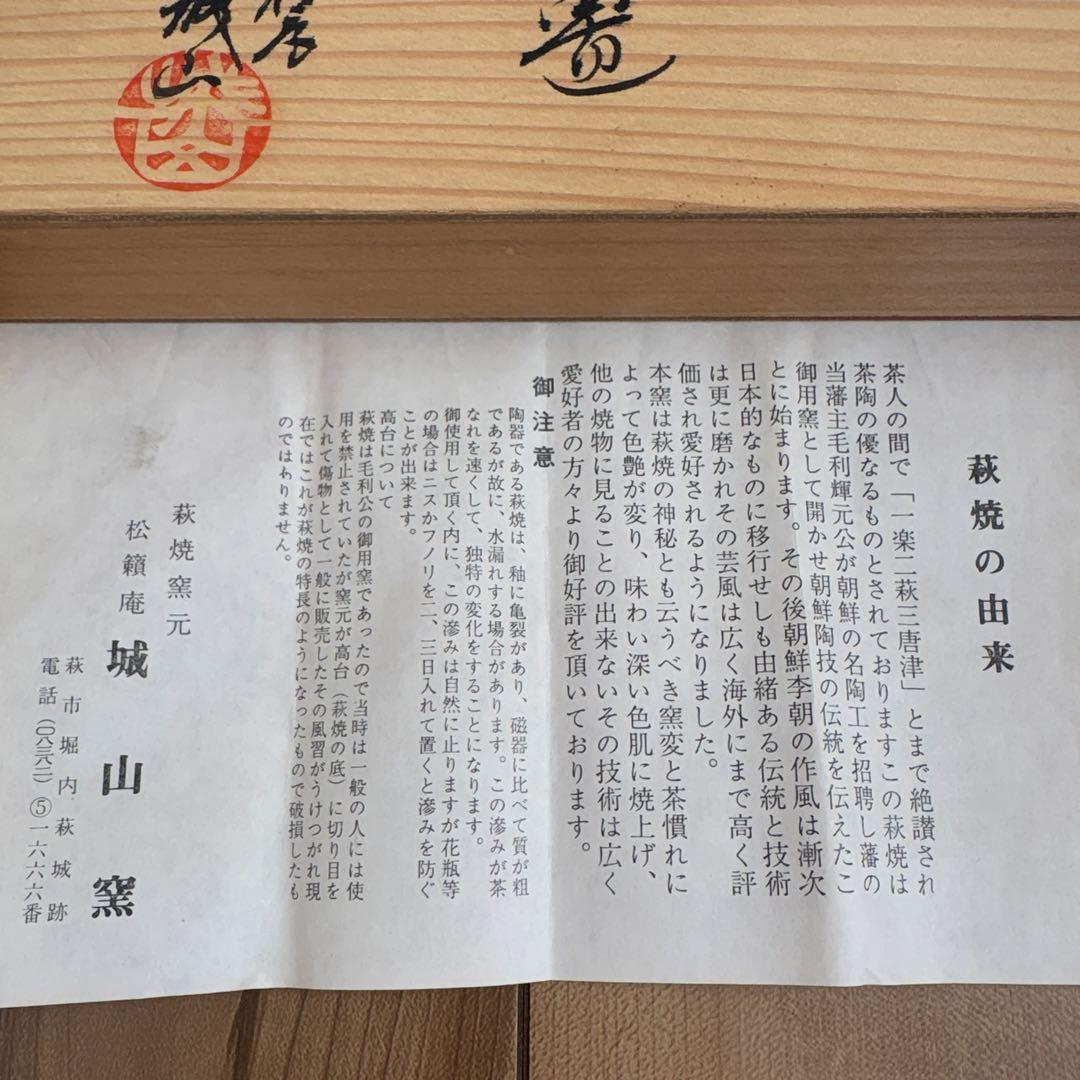 城山
萩焼の由来
茶人の間で「一楽二萩三唐津」とまで絶讃され
茶陶の優なるものとされておりますこの萩焼は
当藩主毛利輝元公が朝鮮の名陶工を招聘し藩の
御用窯として開かせ朝鮮陶技の伝統を伝えたこ
とに始まります。その後朝鮮李朝の作風は漸次
日本的なものに移行せしも由緒ある伝統と技術
は更に磨かれその芸風は広く海外にまで高く評
価され愛好されるようになりました。
本窯は萩焼の神秘とも云うべき窯変と茶慣れに
よって色艶が変り、味わい深い色肌に焼上げ、
他の焼物に見ることの出来ないその技術は広く
愛好者の方々より御好評を頂いております。
御注意
陶器である萩焼は、釉に亀裂があり、磁器に比べて質が粗
であるが故に、水漏れする場合があります。この滲みが茶
なれを速くして、独特の変化をすることになります。
御使用して頂く内に、この滲みは自然に止りますが花瓶等
の場合はニスかフノリを二、三日入れて置くと滲みを防ぐ
ことが出来ます。
高台について
萩焼は毛利公の御用窯であったので当時は一般の人には使
用を禁止されていたが窯元が高台（萩焼の底）に切り目を
入れて傷物として一般に販売したその風習がうけつがれ現
在ではこれが萩焼の特長のようになったもので破損したも
のではわりません。
萩焼窯元
松籟庵 城山窯
萩市堀内萩城跡
電話（〇八三八二）⑤一六六六番